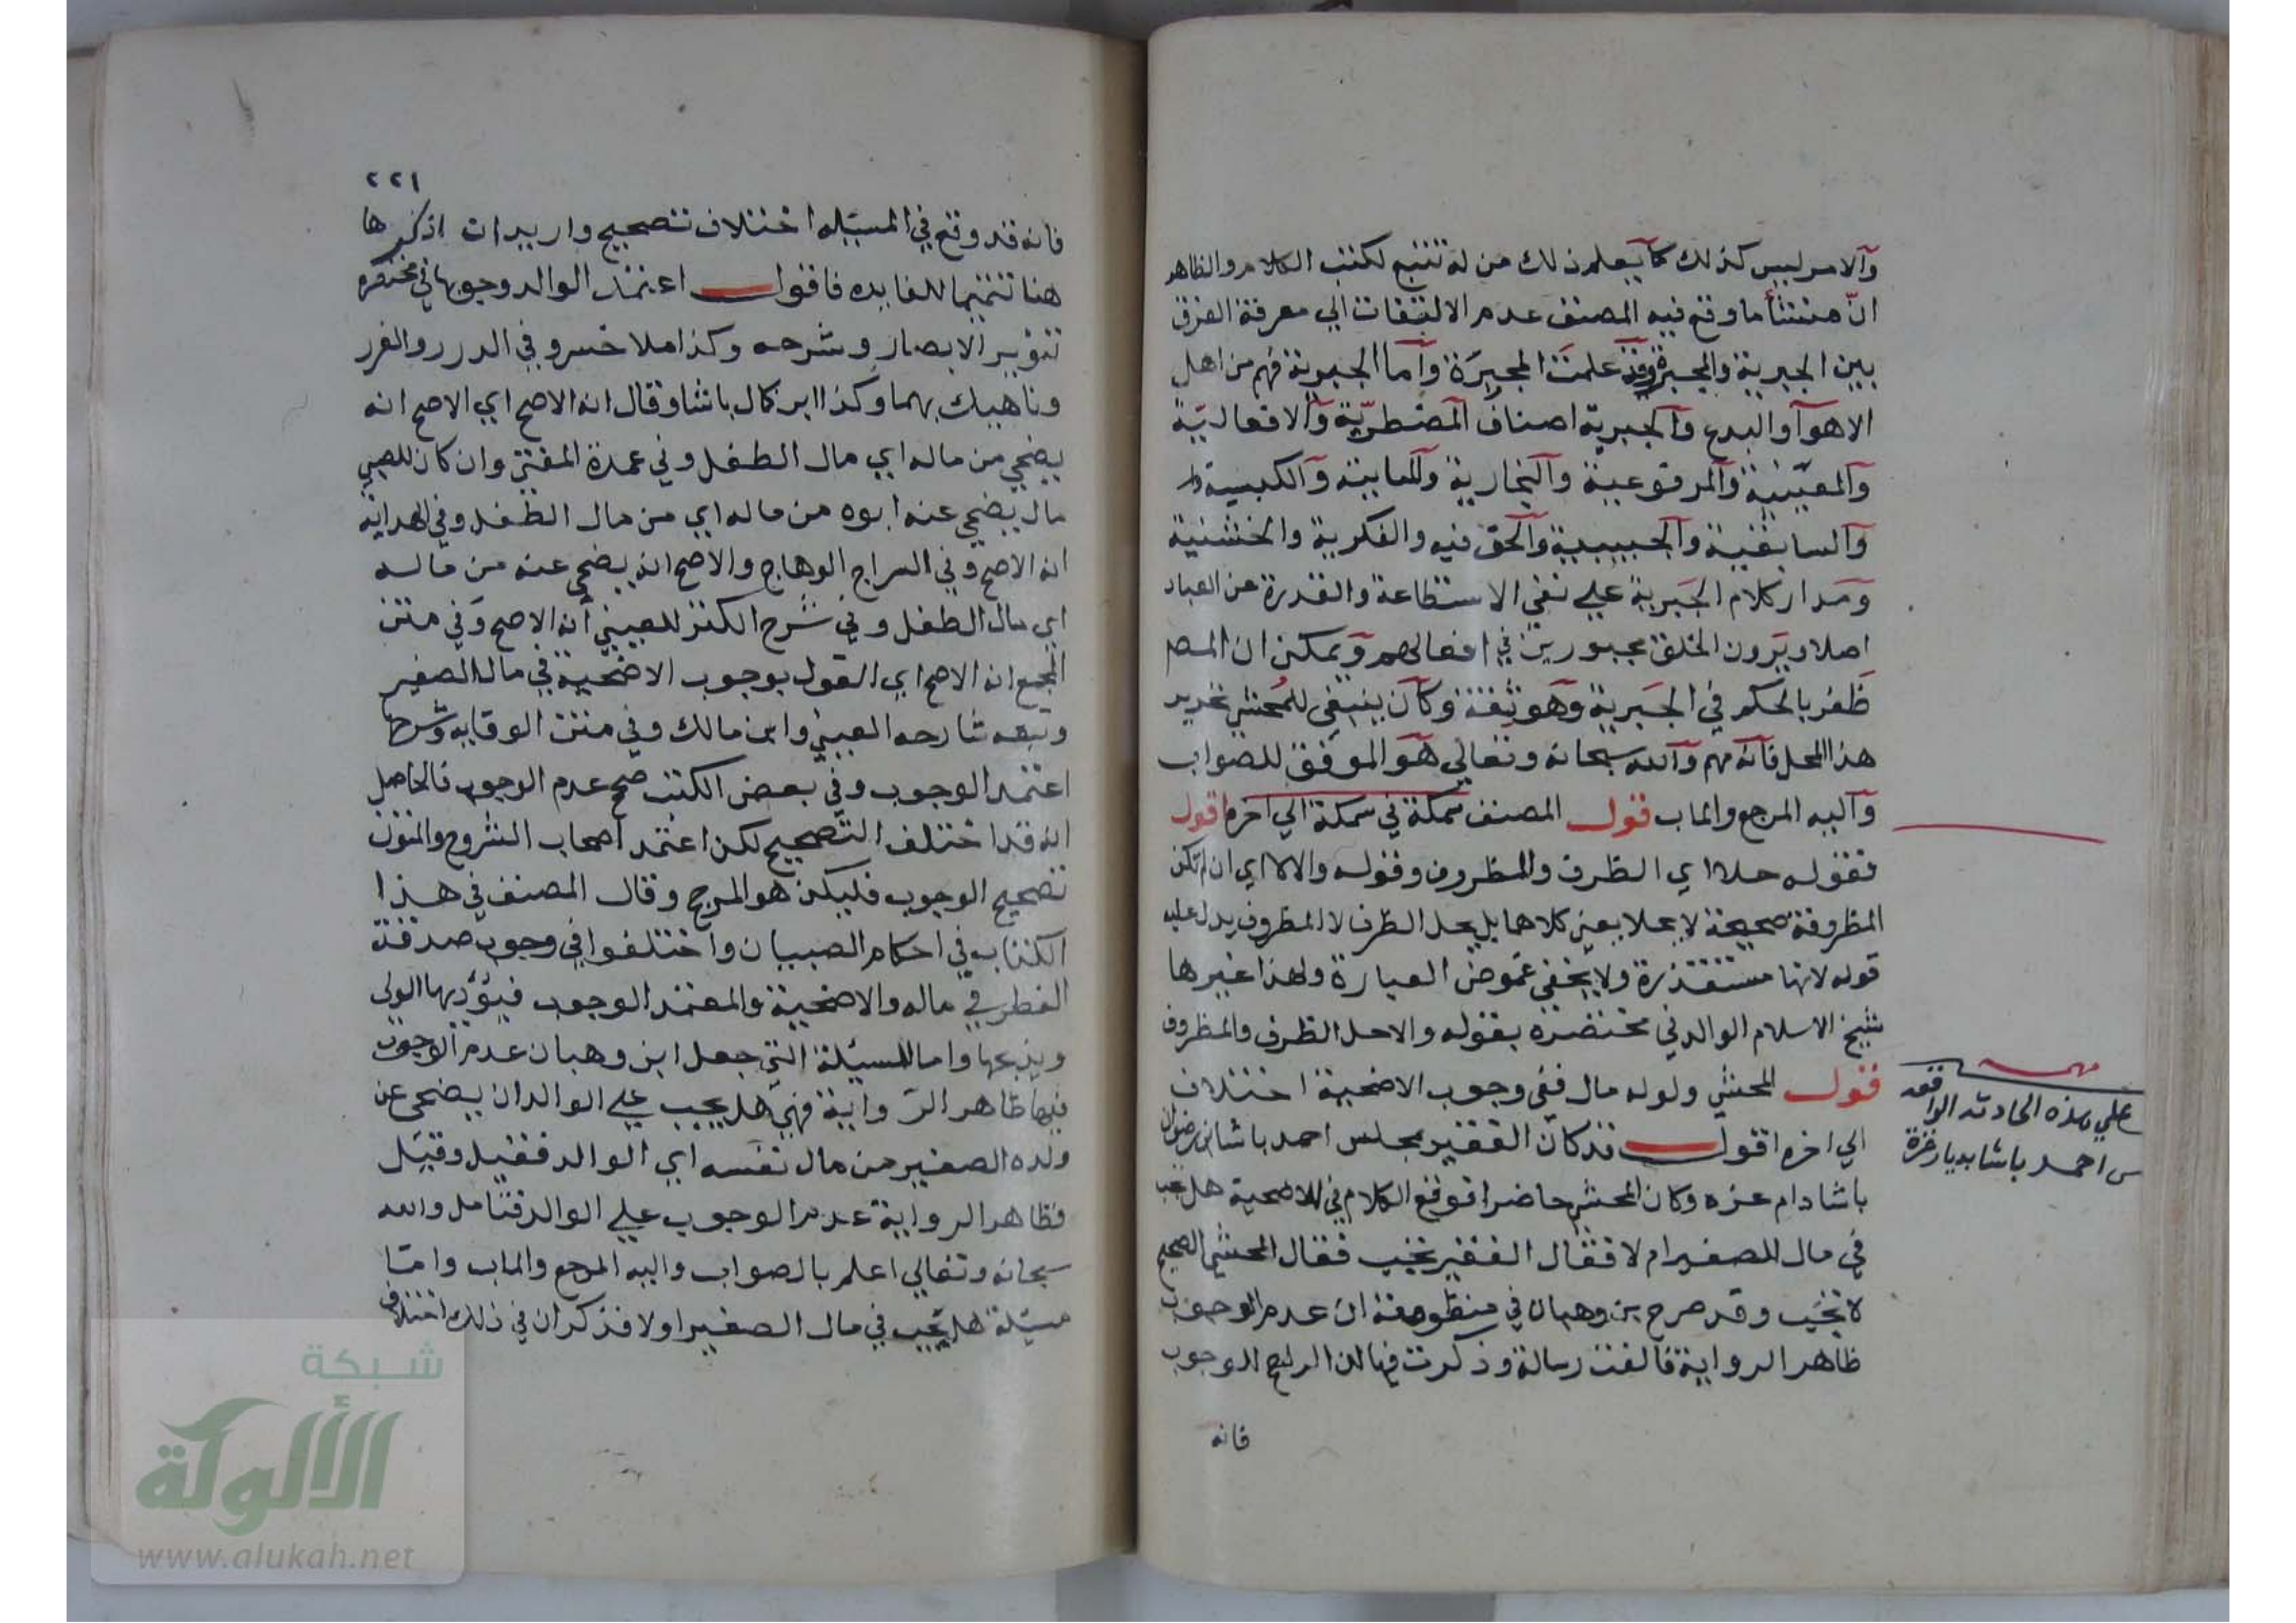 والامر ليس كذلك كما يعلم ذلك من له تتبع لكتب الكلام والظاهر
انّ منشأ ما وقع فيه المصنف عدم الالتفات الي معرفة الفرق
بين الجبرية والمجبرة وقد علمت المجبرة وأما الجبرية فهم من اهل
الاهوآ والبدع والجبرية اصناف المضطريّة والافعاليّة
والمعيّية والمرفوعية والنجارية والكسبية
والسابقية والحبيبية والحق فيه والفكرية والخشنية
ومدار كلام الجبرية علي نفي الاستطاعة والقدرة عن العباد
اصلا ويرون الخلق مجبورين في افعالهم ويمكن ان المصـ
ظفر بالحكم في الجبرية وهو ثقة وكان ينبغي للمحشي تحرير
هذا المحل فانه مهم والله سبحانه وتعالي هو الموفق للصواب
واليه المرجع والماب قول المصنف سمكة في سمكة الي اخره اقول
فقوله حلا اي الظرف والمظروف وقوله والا لا اي ان لم تكن
المظروفة صحيحة لا يحلا يعني كلاهما بل يحل الظرف لا المظروف يدل عليه
قوله لانها مستقذرة ولا يخفي غموض العبارة ولهذا غيرها
شيخ الاسلام الوالد في مختصره بقوله والا حل الظرف والمظروف
قول المحشي ولو له مال ففي وجوب الاضحية اختلاف
الي اخره اقول قد كان الفقير بمجلس احمد باشا ابن رضوان
باشا دام عزه وكان المحشي حاضرا فوقع الكلام في الاضحية هل تجب
في مال الصغير ام لا فقال الفقير تجب فقال المحشي الصحيح
لا تجب وقد صرح بن وهبان في منظومته ان عدم الوجوب
ظاهر الرواية فالفت رسالة وذكرت فيها ان الراجح الوجوب
فانه
مهمـ
علي هذه الحادثه الواقعه
احمد باشا بديار غزة
٢٢١
فانه قد وقع في المسئله اختلاف تصحيح واريد ان اذكرها
هنا تتميما للفايده فاقول اعتمد الوالد وجوبها في مختصره
تنوير الابصار وشرحه وكذا ملا خسرو في الدرر والغرر
وناهيك بهما وكذا ابن كمال باشا وقال انه الاصح اي الاصح انه
يضحي من ماله اي مال الطفل وفي عمدة المفتي وان كان للصبي
مال يضحي عنه ابوه من ماله اي من مال الطفل وفي الهداية
انه الاصح وفي السراج الوهاج والاصح انه يضحي عنه من ماله
اي مال الطفل وفي شرح الكنز للعيني أنه الاصح وفي متن
المجمع انه الاصح اي القول بوجوب الاضحية في مال الصغير
وتبعه شارحه العيني وابن مالك وفي متن الوقايه وشرحها
اعتمد الوجوب وفي بعض الكتب صحح عدم الوجوب فالحاصل
انه قد اختلف التصحيح لكن اعتمد اصحاب الشروح والمتون
تصحيح الوجوب فليكن هو المرجح وقال المصنف في هذا
الكتاب في احكام الصبيان واختلفوا في وجوب صدقة
الفطر في ماله والاضحية والمعتمد الوجوب فيؤديها الولي
ويذبحها واما المسئلة التي جعل ابن وهبان عدم الوجوب
فيها ظاهر الرواية فهي هل يجب علي الوالد ان يضحي عن
ولده الصغير من مال نفسه اي الوالد فقيل وقيل
فظاهر الرواية عدم الوجوب علي الوالد فتامل والله
سبحانه وتعالي اعلم بالصواب واليه المرجع والماب وامّا
مسئلة هل تجب في مال الصغير اولا فذكر ان في ذلك اختلاف
شبكة
الألوكة
www.alukah.net